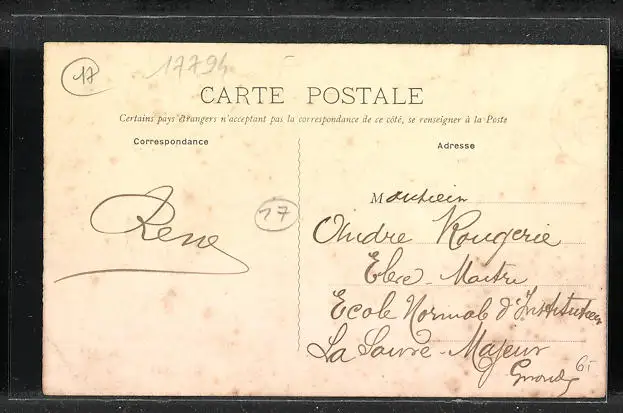 17
17794
CARTE POSTALE
Certains pays étrangers n'acceptant pas la correspondance de ce côté, se renseigner à la Poste
Correspondance
René
17
Adresse
Monsieur
André Rougerie
Elève-Maître
Ecole Normale d'Instituteurs
La Sauve-Majeur
Gironde